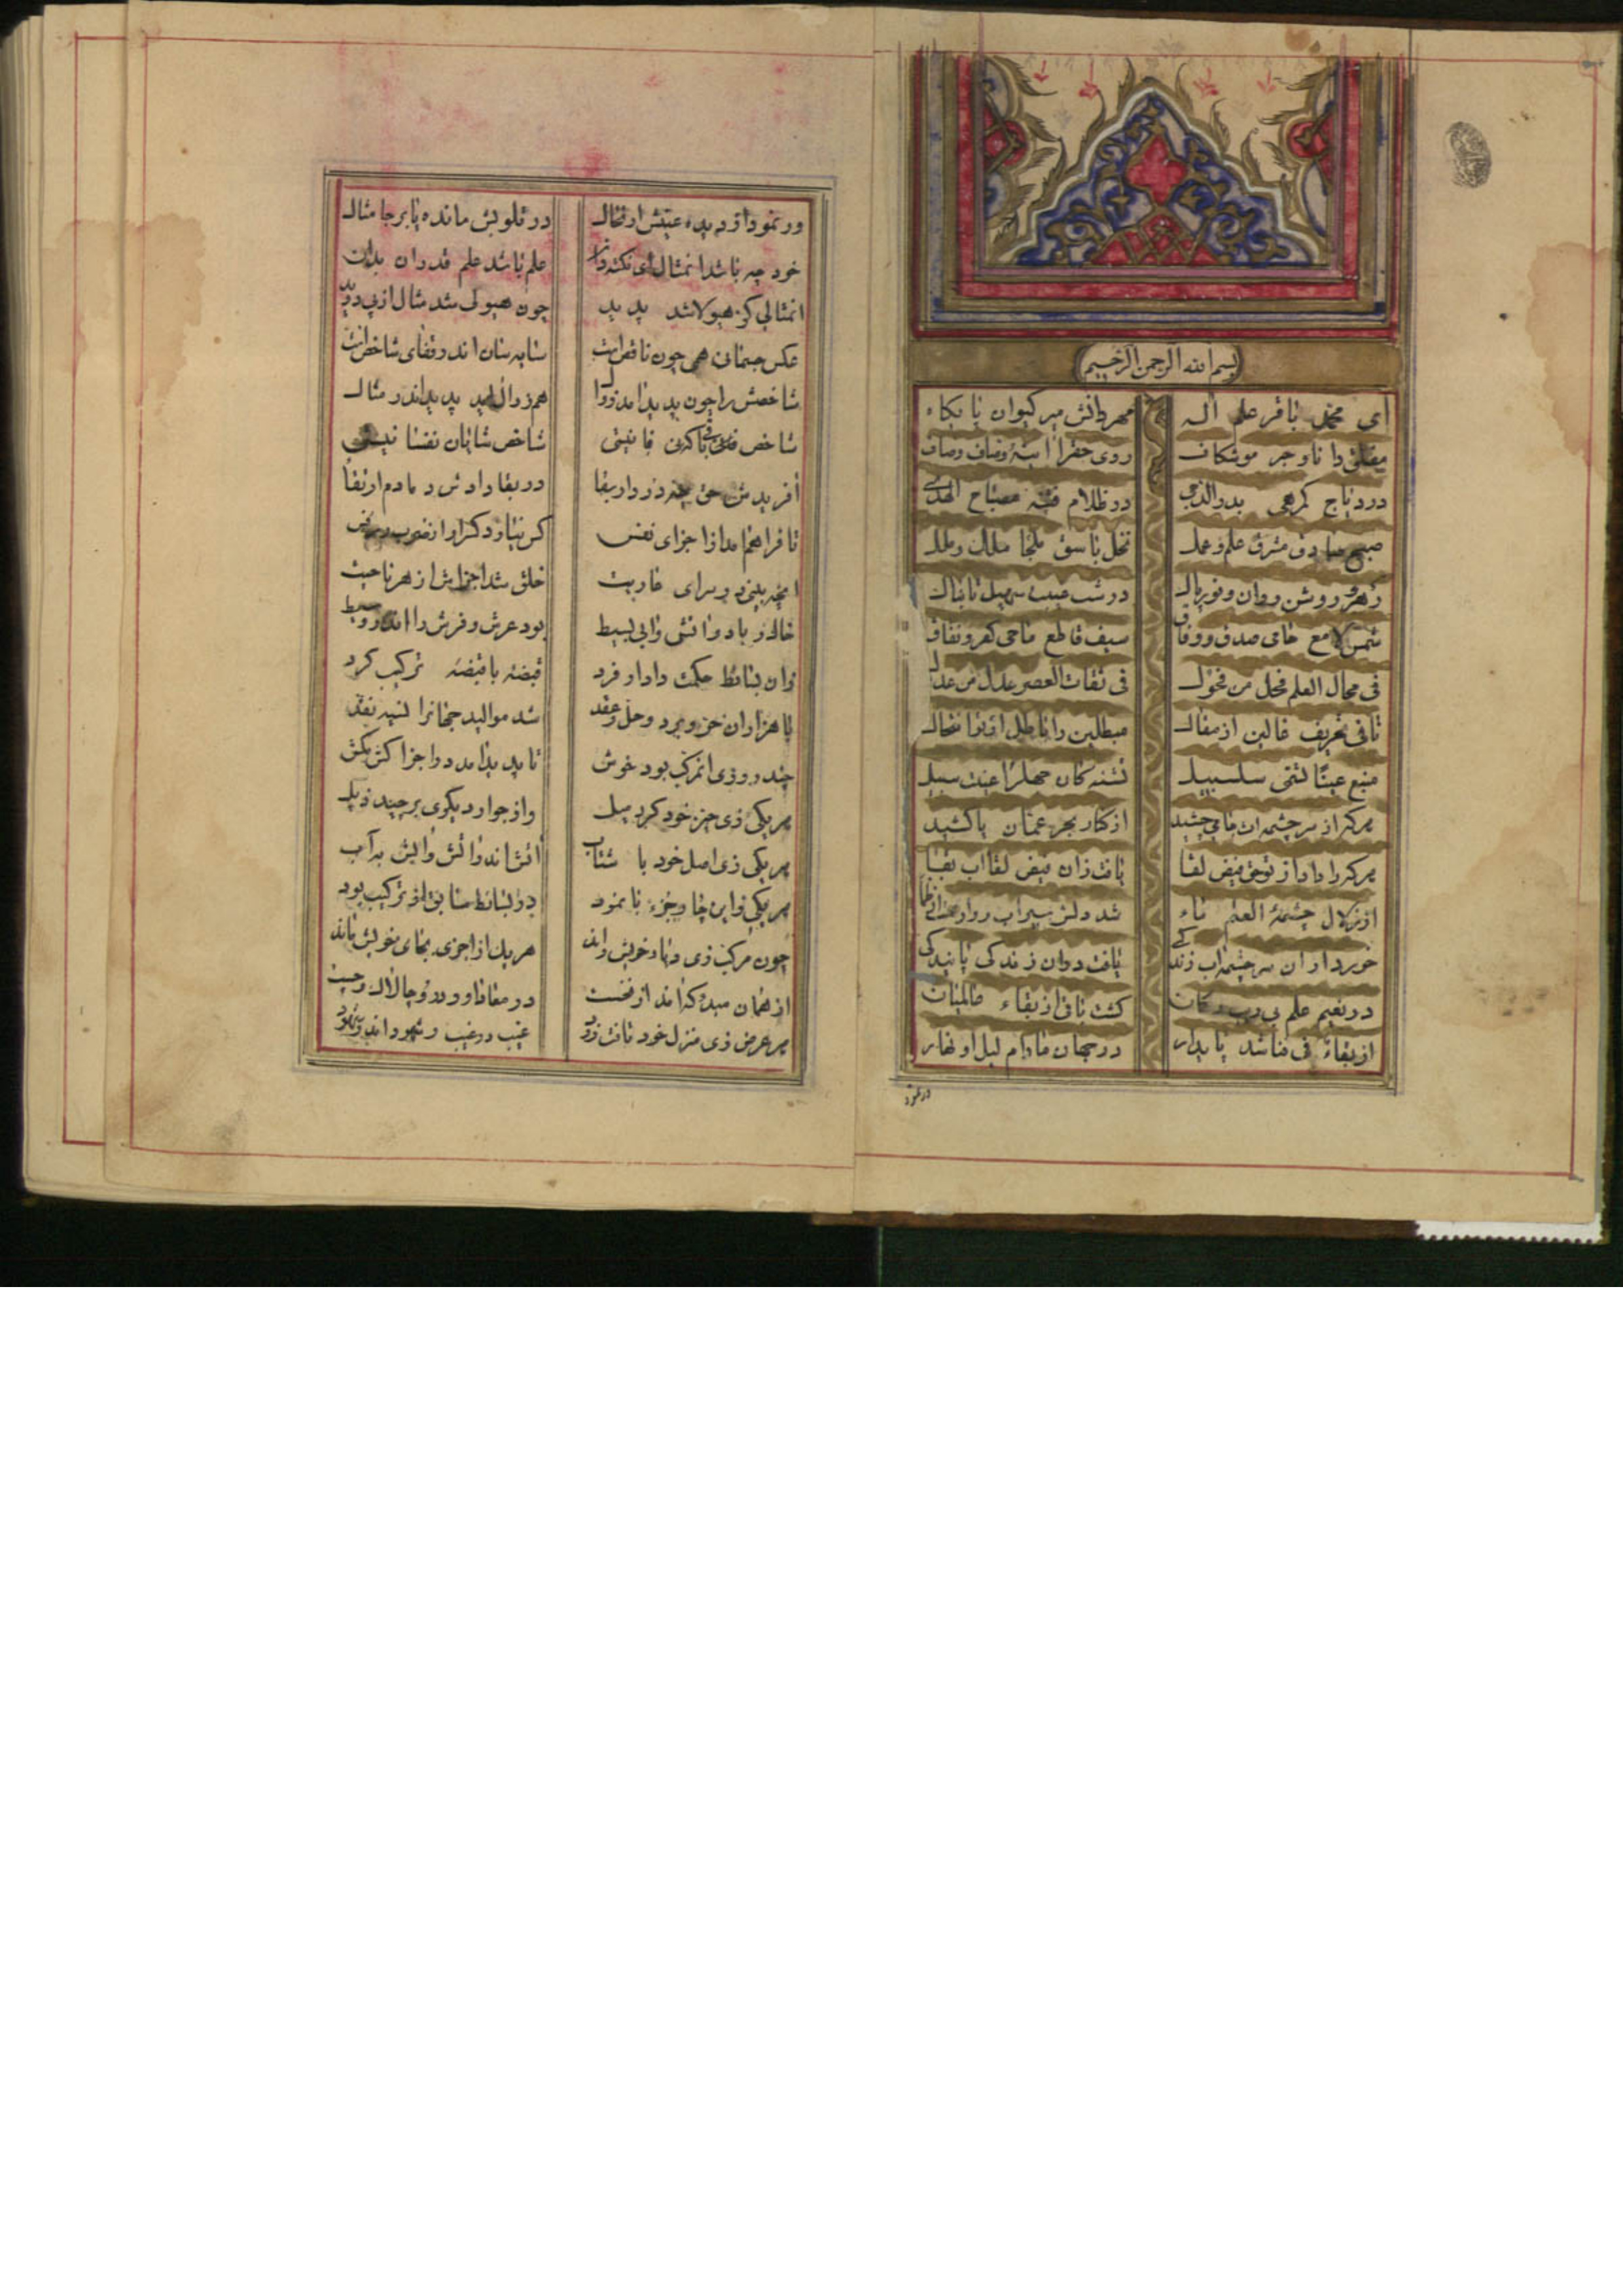 بسم الله الرحمن الرحیم
ای محمد باقر علم اله مهر دانش میر کیوان پایکاه
مفلق دانا و حبر موشکاف روی حقرا اینهٔ وصاف و صاف
در دیاج کمرهی بدر الدجی در ظلام فتنه مصباح الهدی
صبح صادق مشرق علم و عمل نخل باسق ملجا ملک و ملل
زهره روشن روان و نور پاک در شب سهیل تابناک
شمس لامع حامی صدق و وفاق سیف قاطع ماحی کفر و نفاق
فی مجال العلم فحل من فحول فی ثقات العصر عدل من عدول
نافی تحریف غالین از مقال مبطلین را باطل از او انتحال
منبع عینا تسمی سلسبیل تشنه کان جهلرا عینت سبیل
هرکه از سر چشمه ات جامی چشید از کنار بحر عمان پا کشید
هرکه را داد از توحق فیض لقا یافت زان فیض لقا اب بقا
از زلال چشمهٔ العلم ماء شد دلش سیراب و وارهید از ظما
خورد از ان سر چشمه اب زندکی یافت در ان زندکی پایندکی
در نعیم علم بی ریب کشت باقی از بقاء عالمیان
از بقائی فی فنا شد پایدار در جهان مادام لیل او نهار
در نمود
ور نمود از دیده عینش ارتحال در قلوبش مانده پابرجا مثال
خود چه باشد انمثال ای نکته دان علم باشد علم قدر ان بدان
انمثالی کز هیولا شد پدید چون هیولی شد مثال از پی دوید
عکس جسمانی همی چون ناقص است سایه سان اندر قفای شاخص است
شاخصش را چون پدید امد زوال هم زوال اید پدید اندر مثال
شاخص فانی کهن فانیتی شاخص شایان نفسا نیستی
افریدش حق در دار بقا در بقا دادش دمادم ارتقا
تا فراهم امد از اجزای نفس کس نیازد کرد او را
انچه بینی در سرای عاریت خلق شد اجزاش از هر ناحیت
خاک و باد و اتش و ابی بسیط بود عرش و فرش را اندر وسیط
زان بسائط حکمت دادار فرد قبضه با قبضه ترکیب کرد
با هزاران حر و برد و حل و عقد شد موالید جهانرا نسیه نقد
چند روزی انمرکب بود خوش تا پدید امد در اجزا کش مکش
هر یکی زی حیز خود کرد میل واز جوار دیکری برچید ذیل
هر یکی زی اصل خود با شتاب اتش اندر اتش و ابش به آب
هر یکی زاین چار جزء نابمود در بسائط سابق از ترکیب بود
چون مرکب زی دمار خویش راند هر یک از اجزی بجای خویش ماند
از همان مبدء که امد از نخست در معاد او رود و چالاک و چست
هر عرض زی منزل خود تافت زود غیب در غیب و شهود اندر شهود